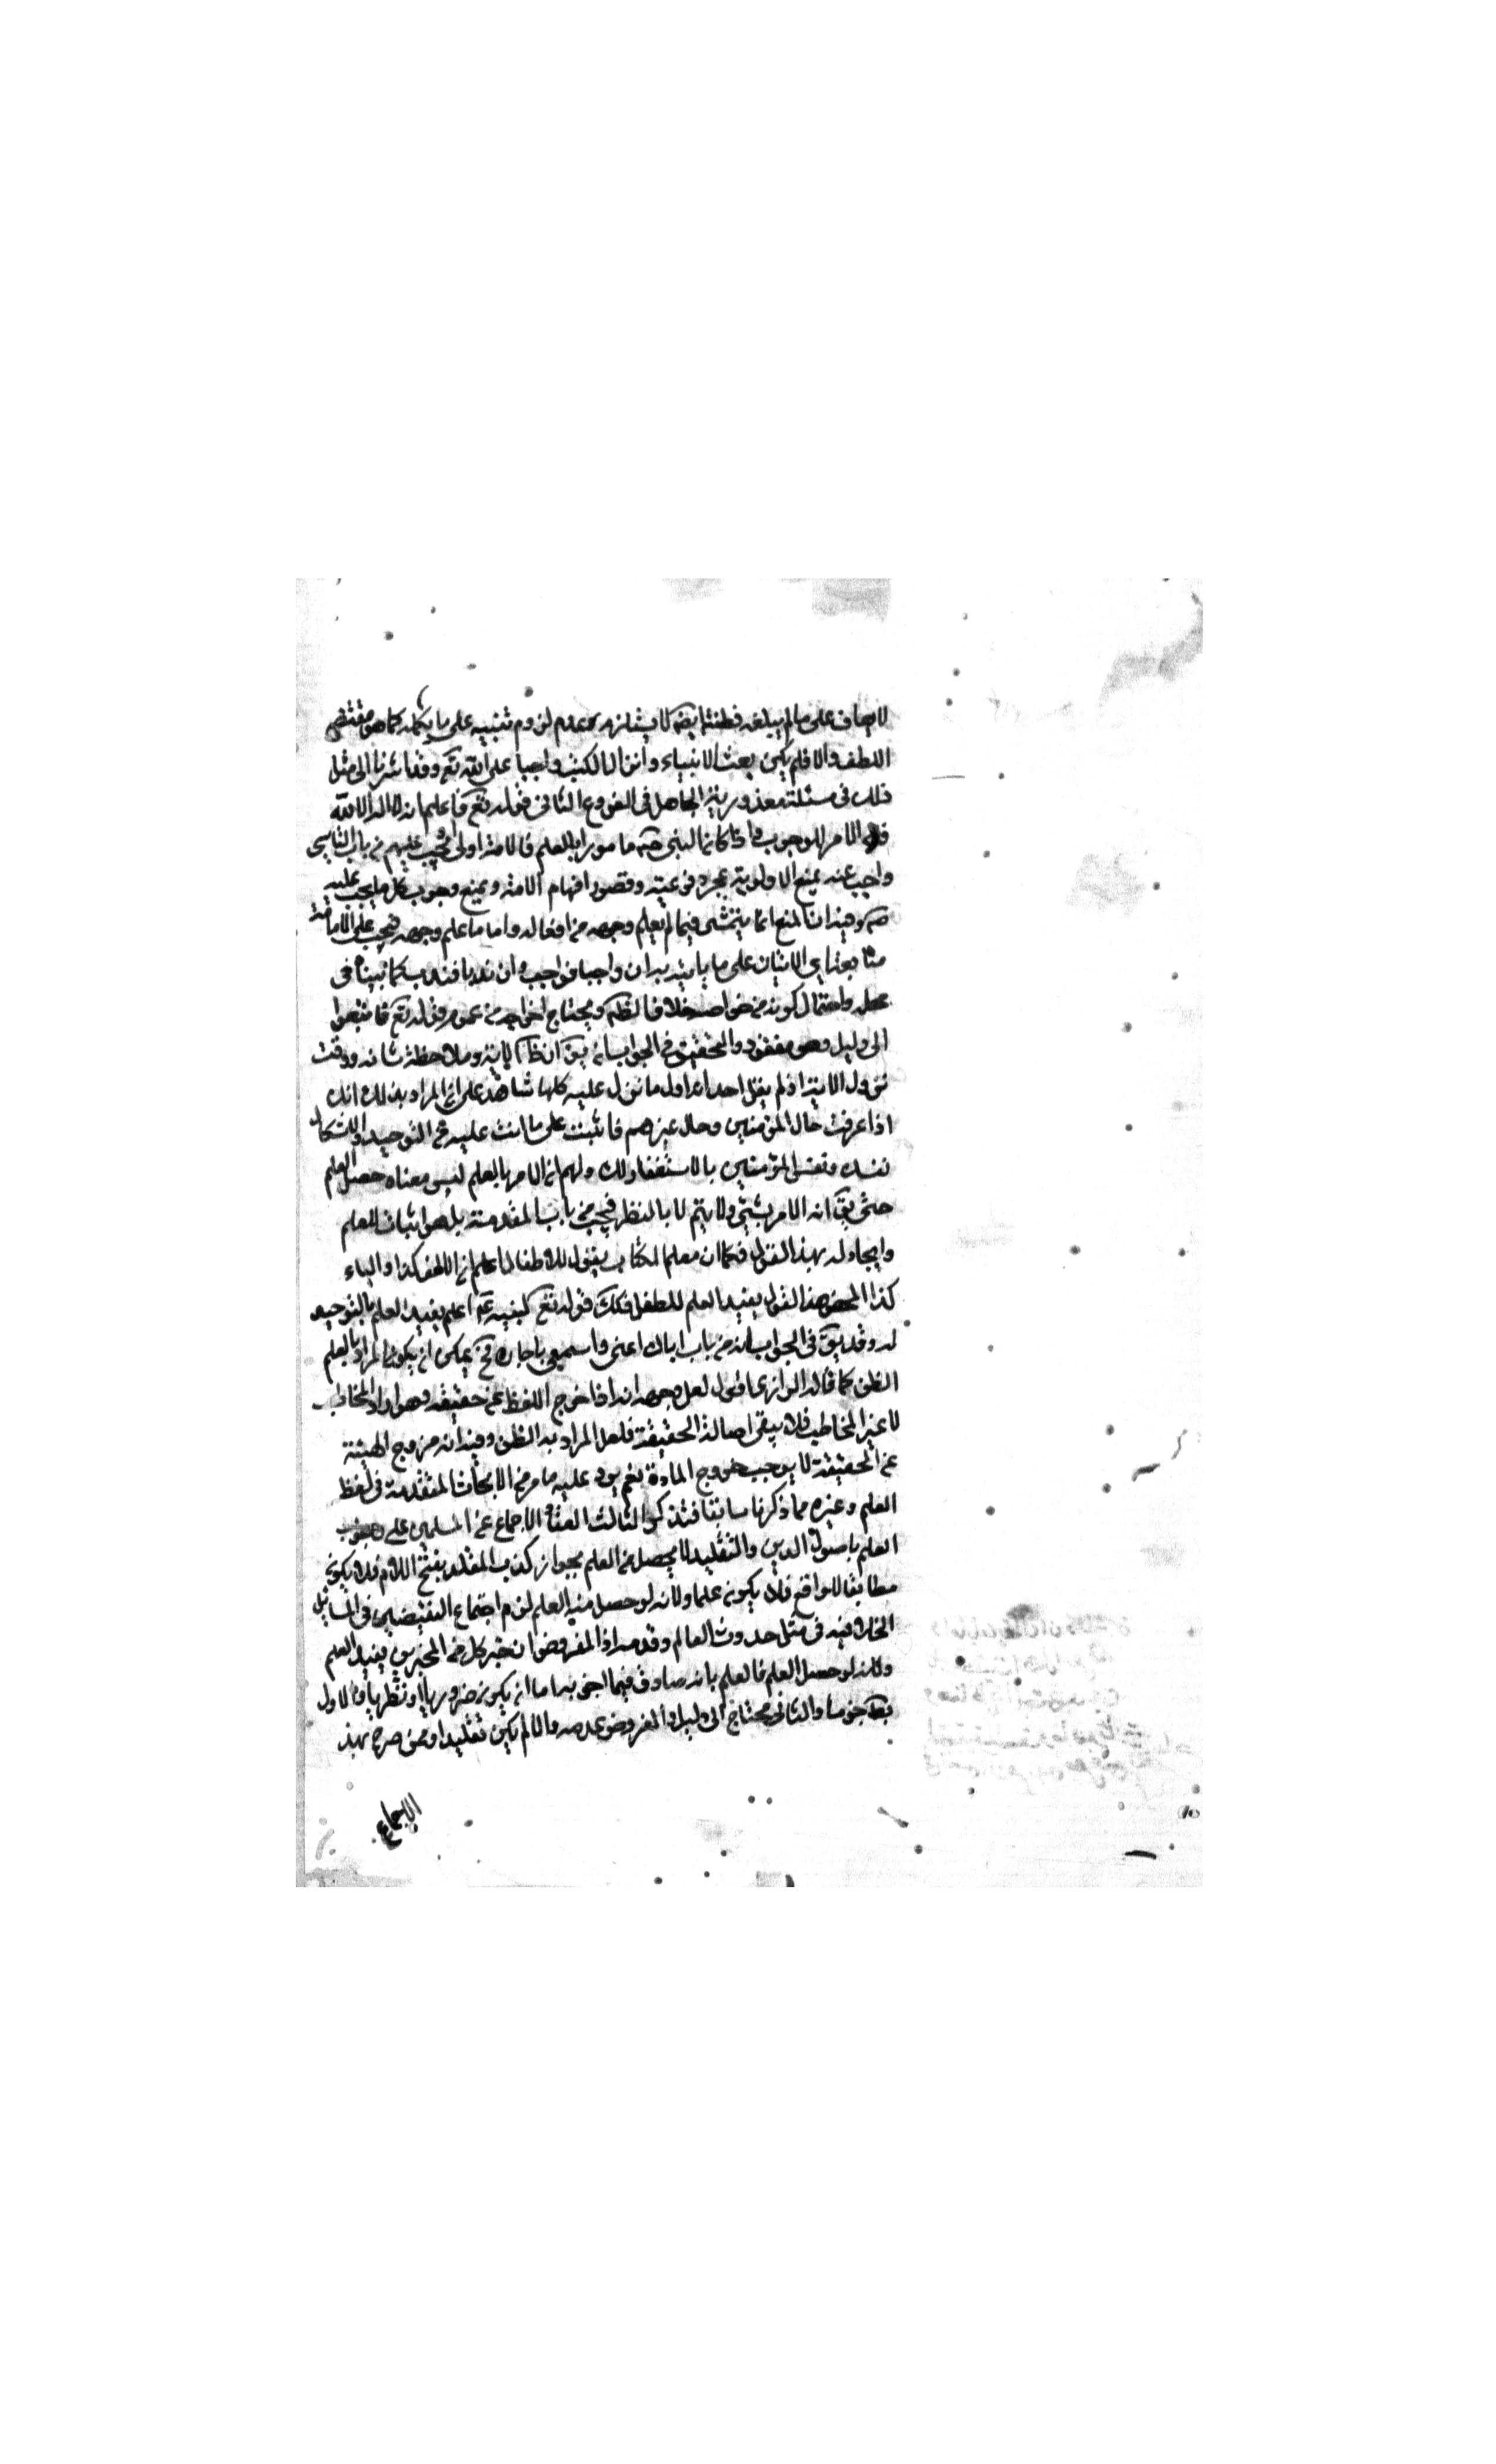 لا يعاف على ما لم يبلغه فطنته ايضه لا يستلزم عدم لزوم تنبيه على ما يكمله كما هو مقتضى
اللطف والا فلم يكن بعث الانبياء وانزال الكتب واجبا على الله تع وقد اشرنا الى مثل
ذلك فى مسئلة معذورية الجاهل فى الفروع الثانى قوله تع فاعلم انه لا اله الا الله
فان الامر للوجوب واذا كان النبى صه مامورا بالعلم فالامة اولى او يجب عليهم من باب التاسى
واجيب عنه بمنع الاولوية بمجرد فى عيته وقصور افهام الامة وبمنع وجوب كل ما يجب عليه
صه وفيه ان المنع انما يتمشى فيما لم يعلم وجهه من افعاله واما ما علم وجهه فيجب على الامة
متابعته اى الاتيان على ما ياتيه به ان واجبا فواجب وان ندبا فندب كما بيناه فى
محله واحتمال كونه من خواصه خلاف الظه ويحتاج اخراجه من عموم قوله تع فاتبعوا
الى دليل وهو مفقود والتحقيق فى الجواب انه يق ان ظ الاية وملاحظة شانه ووقت
نزول الاية اذ لم يقل احد انه اول ما نزل عليه كلها شاهد على ان المراد بذلك انك
اذا عرفت حال المؤمنين وحال غيرهم فاثبت على ما انت عليه من التوحيد واستكمال
نفسك ونفس المؤمنين بالاستغفار لك ولهم ان الامر بالعلم ليس معناه حصل العلم
حتى يق انه الامر بشئ ولا يتم الا بالنظر فيجب من باب المقدمة بل هو اثبات للعلم
وايجاد له بهذا القول فكما ان معلم الكتاب يقول للاطفال اعلم ان الالف كذا والباء
كذا المحض هذا القول يفيد العلم للطفل فكك قوله تع لنبيه صه اعلم يفيد العلم بالتوحيد
له وقد يق فى الجواب انه من باب اياك اعنى واسمعى يا جاره فح يمكن ان يكون المراد بالعلم
الظن كما قاله الرازى اقول لعل وجهه انه اذا خرج اللفظ عن حقيقته وهو ارادة المخاطب
لا غير المخاطب فلا يبقى اصالة الحقيقة فلعل المراد به الظن وفيه ان خروج الهيئة
عن الحقيقة لا يوجب خروج المادة نعم يرد عليه ما مر من الابحاث المتقدمة فى لفظ
العلم وغيره مما ذكرنا سابقا فتذكر الثالث انعقاد الاجماع من المسلمين على وجوب
العلم باصول الدين والتقليد لا يحصل منه العلم لجواز كذب المقلد بفتح اللام فلا يكون
مطابقا للواقع فلا يكون علما ولانه لو حصل منه العلم لزم اجتماع النقيضين فى المسائل
الخلافية فى مثل حدوث العالم وقدمه اذ المفروض ان خبر كل من المخبرين يفيد العلم
ولانه لو حصل العلم فالعلم بانه صادق فيما اخبر به اما ان يكون ضروريا او نظريا والاول
بط جزما والثانى محتاج الى دليل والمفروض عدمه والا لم يكن تقليدا وممن صرح بهذ
الاجماع